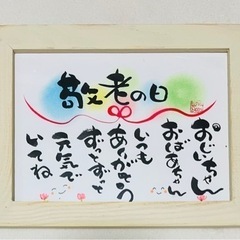 敬老の日
おじいちゃん
おばあちゃん
いつも
ありがとう
ずっとずっと
元気で
いてね